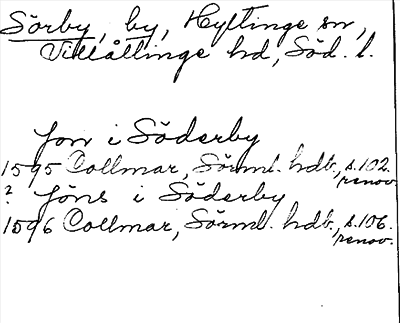 Sörby, by, Hyltinge sn,
Villåttinge hd, Söd. l.
Jon i Söderby
1595 Collmar, Sörml. hdb, s.102.
renov.
? Jöns i Söderby
1596 Collmar, Sörml. hdb, s.106.
renov.